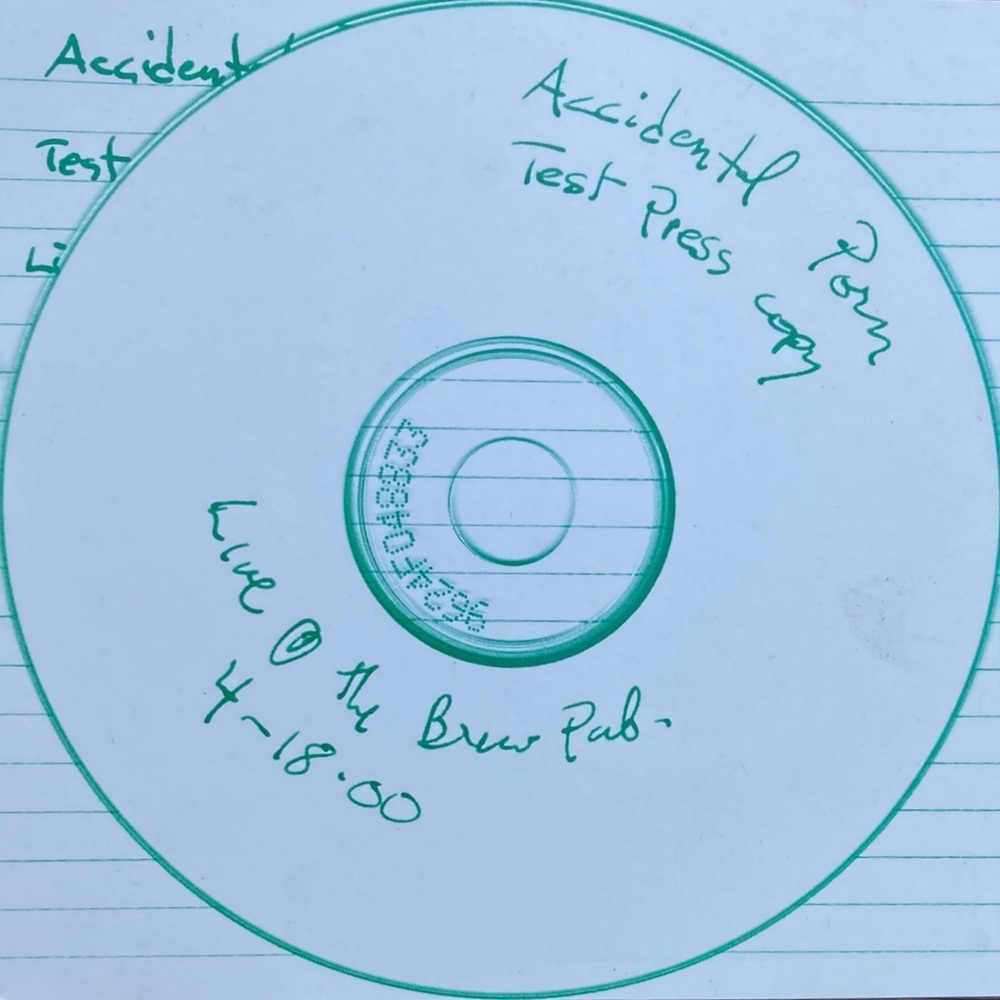 Accident
Test
Li
Accidental Porn
Test Press copy
Live @ the Brew Pub-
4-18.00